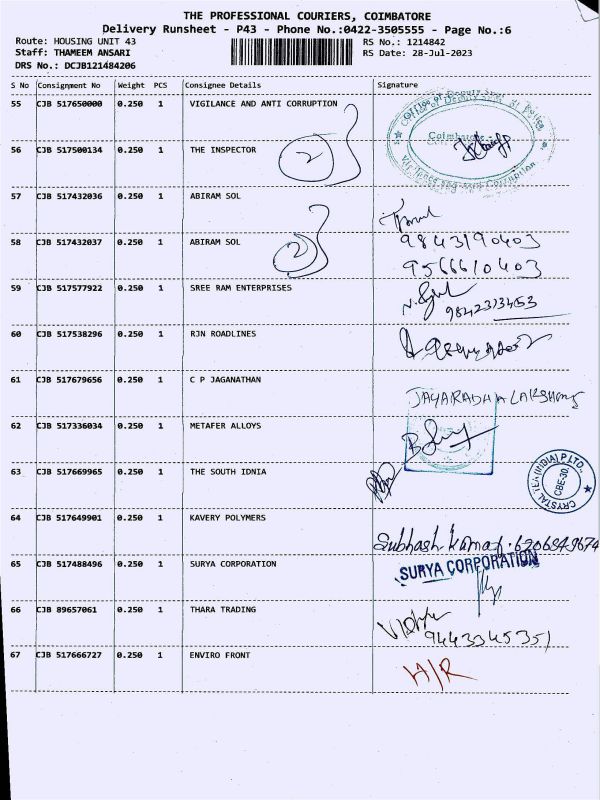 THE PROFESSIONAL COURIERS, COIMBATORE
Delivery Runsheet - P43 - Phone No.:0422-3505555 - Page No.:6
Route: HOUSING UNIT 43
RS No.: 1214842
Staff: THAMEEM ANSARI
RS Date: 28-Jul-2023
DRS No.: DCJB121484206
S No Consignment No Weight PCS Consignee Details Signature
55 CJB 517650000 0.250 1 VIGILANCE AND ANTI CORRUPTION
Coimbatore
56 CJB 517500134 0.250 1 THE INSPECTOR
2
57 CJB 517432036 0.250 1 ABIRAM SOL
58 CJB 517432037 0.250 1 ABIRAM SOL 9843190403
2
9566610403
59 CJB 517577922 0.250 1 SREE RAM ENTERPRISES
9842313453
60 CJB 517538296 0.250 1 RJN ROADLINES
61 CJB 517679656 0.250 1 C P JAGANATHAN
62 CJB 517336034 0.250 1 METAFER ALLOYS
63 CJB 517669965 0.250 1 THE SOUTH IDNIA
CRYSTAL TEA (INDIA) P.LTD.
CBE-30
64 CJB 517649901 0.250 1 KAVERY POLYMERS
Subhash Kumar
65 CJB 517488496 0.250 1 SURYA CORPORATION SURYA CORPORATION
66 CJB 89657061 0.250 1 THARA TRADING
9443345351
67 CJB 517666727 0.250 1 ENVIRO FRONT H/R